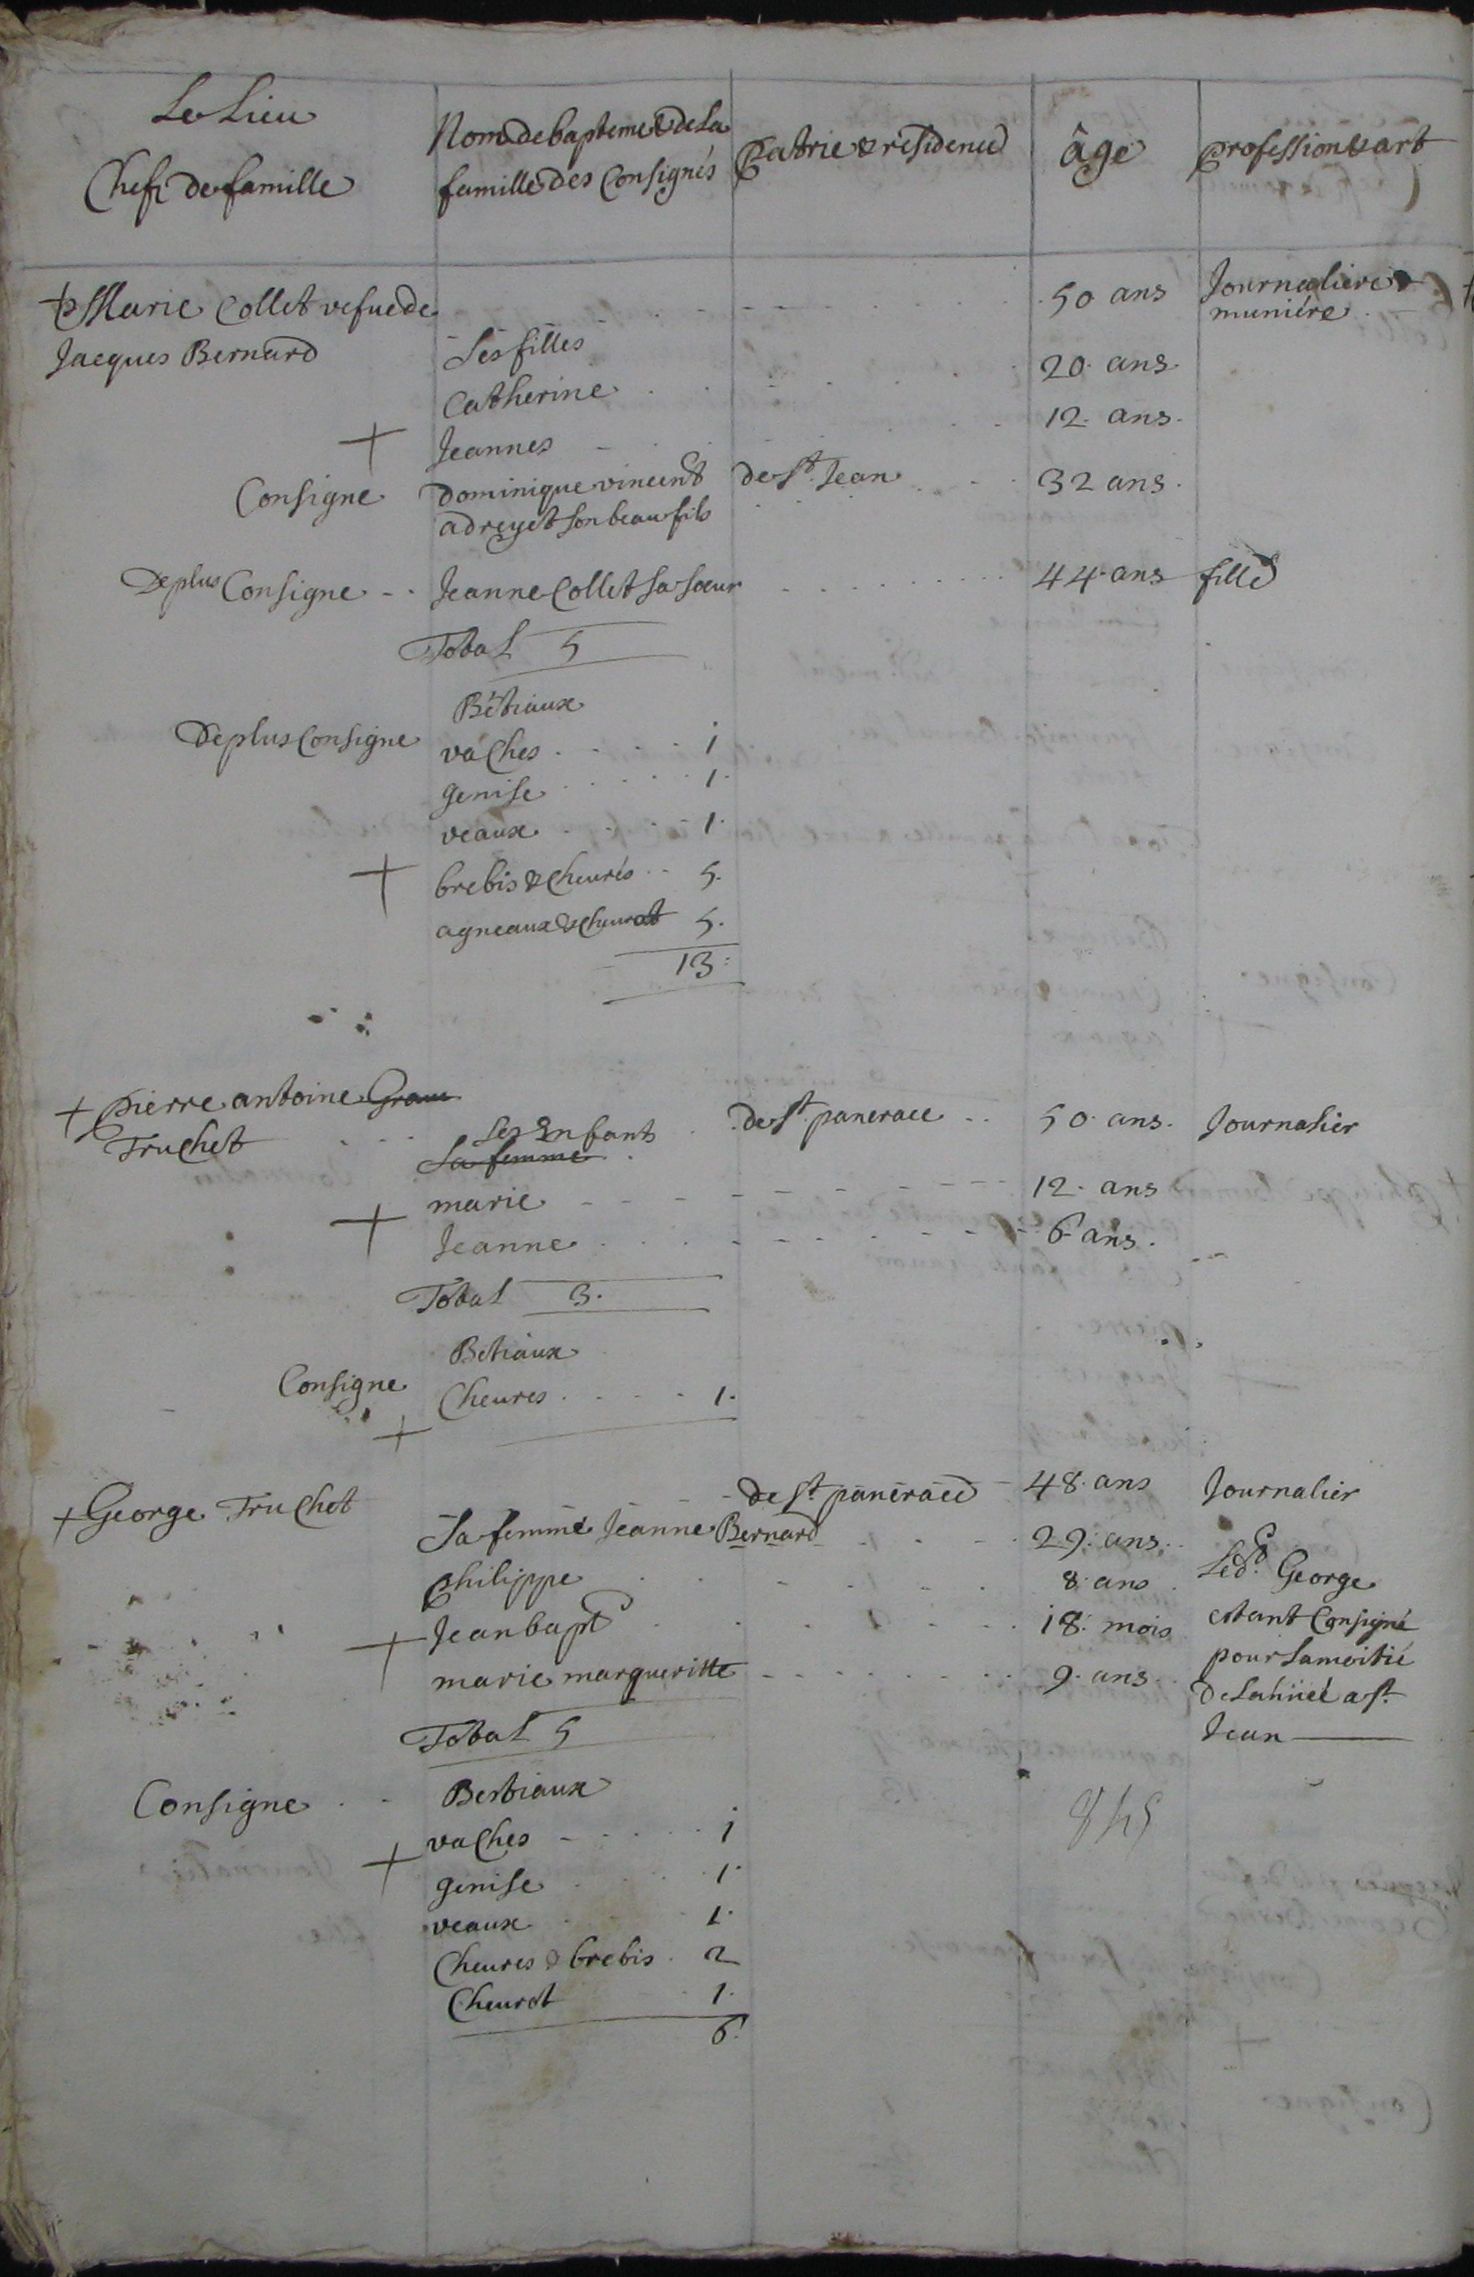 Le Lieu
Chefs de famille
Noms de bapteme & de La
famille des Consignés
patrie & residence
âge
profession & art
+ Marie Collet vefue de 50 ans Journaliere &
muniére
Jacques Bernard
Ses filles
Catherine 20. ans
+ Jeanne 12. ans.
Consigne Dominique vincent de St. Jean 32 ans.
adreyet son beau fils
De plus Consigne Jeanne Collet sa soeur 44 ans fille
Total 5
Bétiaux
De plus Consigne
vaches 1
genise 1.
veaux 1.
+ brebis & cheures 5.
agneaux & cheurot 5.
13.
+ pierre antoine
Truchet de St. pancrace 50 ans. Journalier
Ses Enfants
Sa femme
marie 12. ans
+ Jeanne 6 ans.
Total 3.
Betiaux
Consigne Cheures 1.
+
+ George Truchet de St. pancrace 48 ans Journalier
Sa femme Jeanne Bernard 29. ans.
philippe 8. ans
+ Jean bapt 18. mois
marie margueritte 9. ans
Led. George
estant Consigné
pour La moitié
de Lannéé a St.
Jean
Total 5
Consigne Bestiaux
vaches 1
+ genise 1.
veaux 1.
Cheures & brebis 2
Cheurot 1.
6.